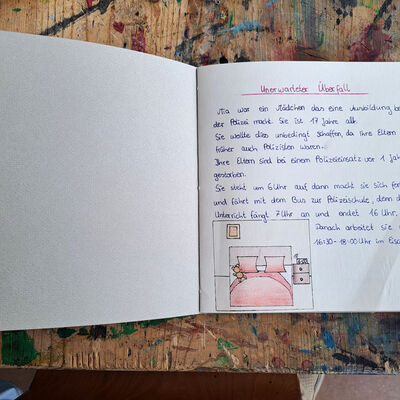 Unerwarteter Überfall
Mia war ein Mädchen das eine Ausbildung be
der Polizei macht. Sie ist 17 Jahre alt.
Sie wollte dies unbedingt schaffen, da ihre Eltern
früher auch Polizisten waren.
Ihre Eltern sind bei einem Polizeieinsatz vor 1 Jah
gestorben.
Sie steht um 6 Uhr auf dann macht sie sich fer
und fährt mit dem Bus zur Polizeischule, denn d
Unterricht fängt 7 Uhr an und endet 16 Uhr.
Danach arbeitet sie
16:30-18:00 Uhr im Eisc